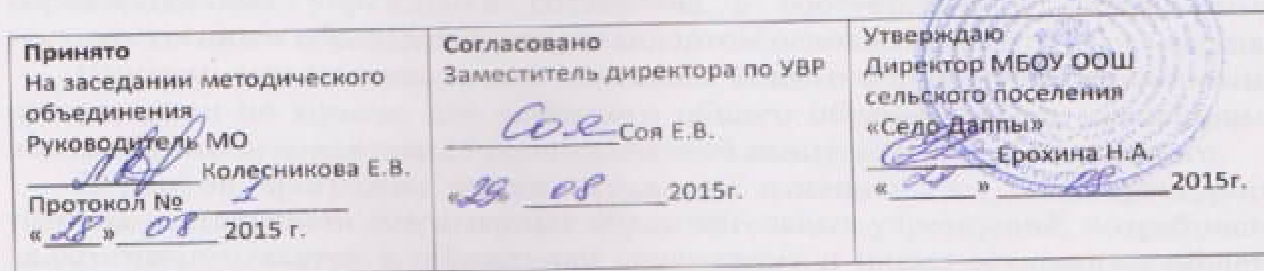 Принято
На заседании методического
объединения
Руководитель МО
Колесникова Е.В.
Протокол № 1
«28» 08 2015 г.
Согласовано
Заместитель директора по УВР
Соя Соя Е.В.
«29» 08 2015г.
Утверждаю
Директор МБОУ ООШ
сельского поселения
«Село Даппы»
Ерохина Н.А.
« » 08 2015г.